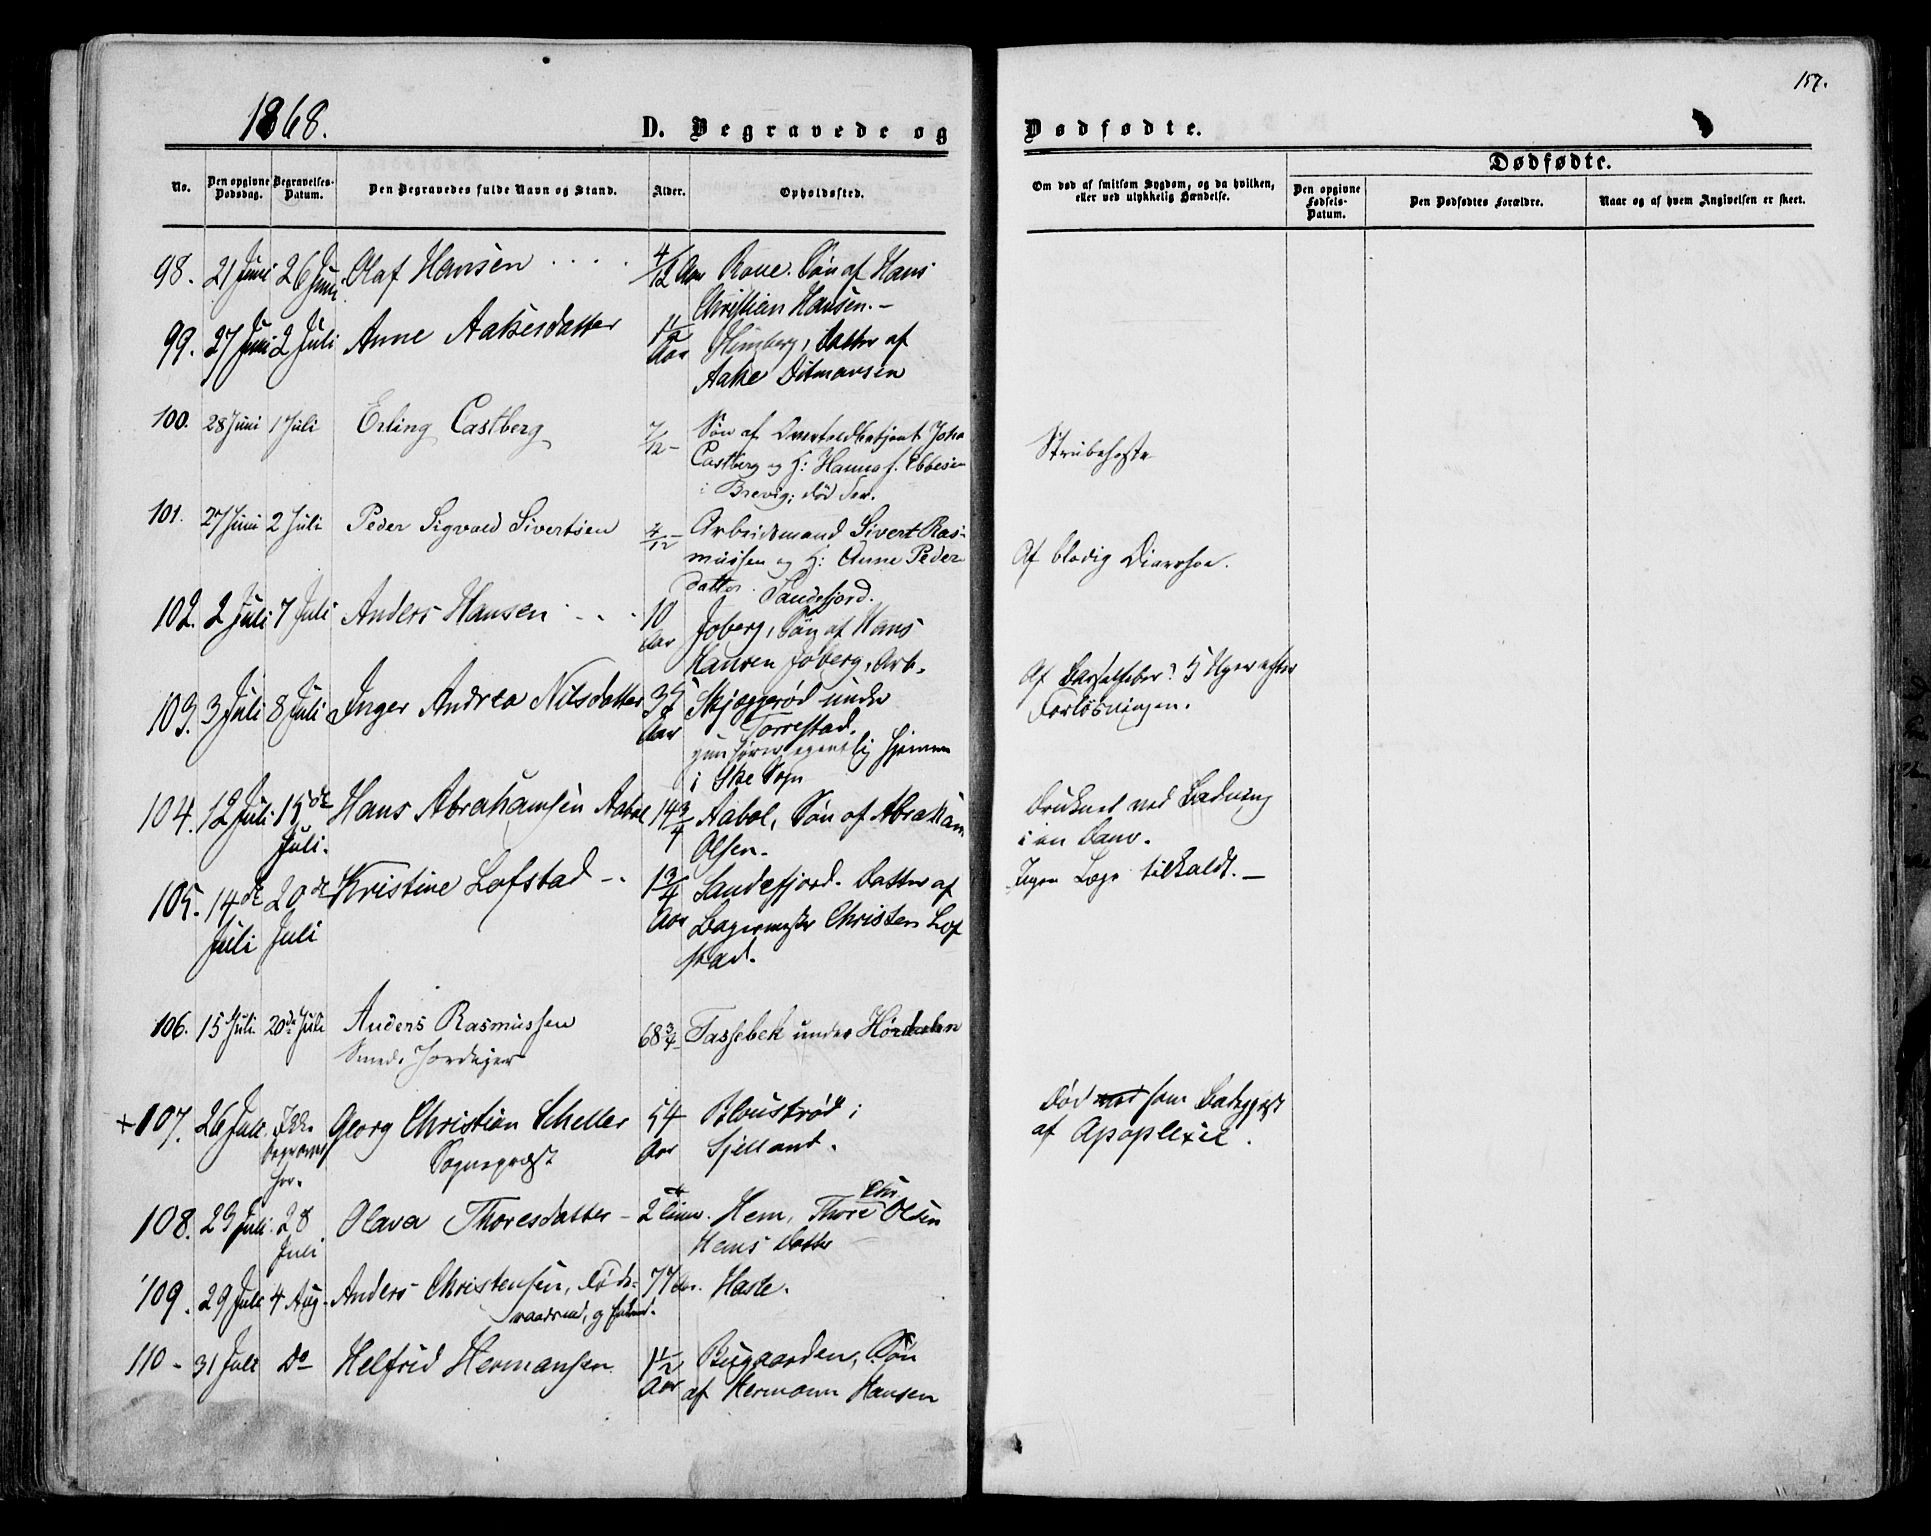 157.
1868.
D. Begravede og Dødfødte.
Dødfødte.
No.
Den opgivne Dødsdag.
Begravelses-Datum.
Den Begravedes fulde Navn og Stand.
Alder.
Opholdssted.
Om død af smitsom Sygdom, og da hvilken,
eller ved ulykkelig Hændelse.
Den opgivne Fødsels-Datum.
Den Dødfødtes Forældre.
Naar og af hvem Angivelsen er skeet.
98. 21 Juni 26 Juni Olaf Hansen 4/12 Aar Søn af Hans
Christian Hansen.
99. 27 Juni 2 Juli Anne Aakesdatter 1 1/2 Aar Himberg, Datter af
Aake Ditmansen
100. 28 Juni 1 Juli Erling Castberg 7/12 Søn af Overtoldbetjent Joha
Castberg og H: Hanna f. Ebbesen
i Brevig; død der.
Strubehoste
101. 27 Juni 2 Juli Peder Sigvald Sivertsen 4/12 Arbeidsmand Sivert Ras-
mussen og H: Anne Peder
datter. Sandefjord.
Af blodig Diarrhoe.
102. 2 Juli 7 Juli Anders Hansen 10 Aar Joberg, Søn af Hans
Hansen Joberg, Arb.
103. 3 Juli 8 Juli Inger Andrea Nilsdatter Aar Skjæggerød under
Torrestad.
egentlig hjemme
i Sogn
Af Barselfeber? 5 Uger efter
Forløsningen.
104. 12 Juli 15de Juli. Hans Abrahamsen Aabol 14 3/4 Aabol, Søn af Abraham
Olsen.
Druknet ved Badning
i en Dam.
105. 14de Juli 20de Juli Kristine Lofstad 1 3/4 Aar Sandefjord. Datter af
Bagermester Christen Lof
stad.
Ingen Læge tilkaldt.
106. 15 Juli 20de Juli Anders Rasmussen 68 3/4 Tassebek under
Smed. Jordeier
+ 107. 26 Juli Ikke Begravet her. Georg Christian Scheller 54 Aar Bloustrød i
Sognepræst
Sjelland.
Død som Badegjest
af Apoplexie.
108. 23 Juli 28 Juli Olava Thoresdatter 2 Hem, Thore Chr. Olsen
Hems Datter
109. 29 Juli 4 Aug. Anders Christensen, Føde- 77 Aar. Hasle.
raadsmd,
110 31 Juli Do Helfrid Hermansen 1 1/2 Aar Bugaarden, Søn
af Hermann Hansen